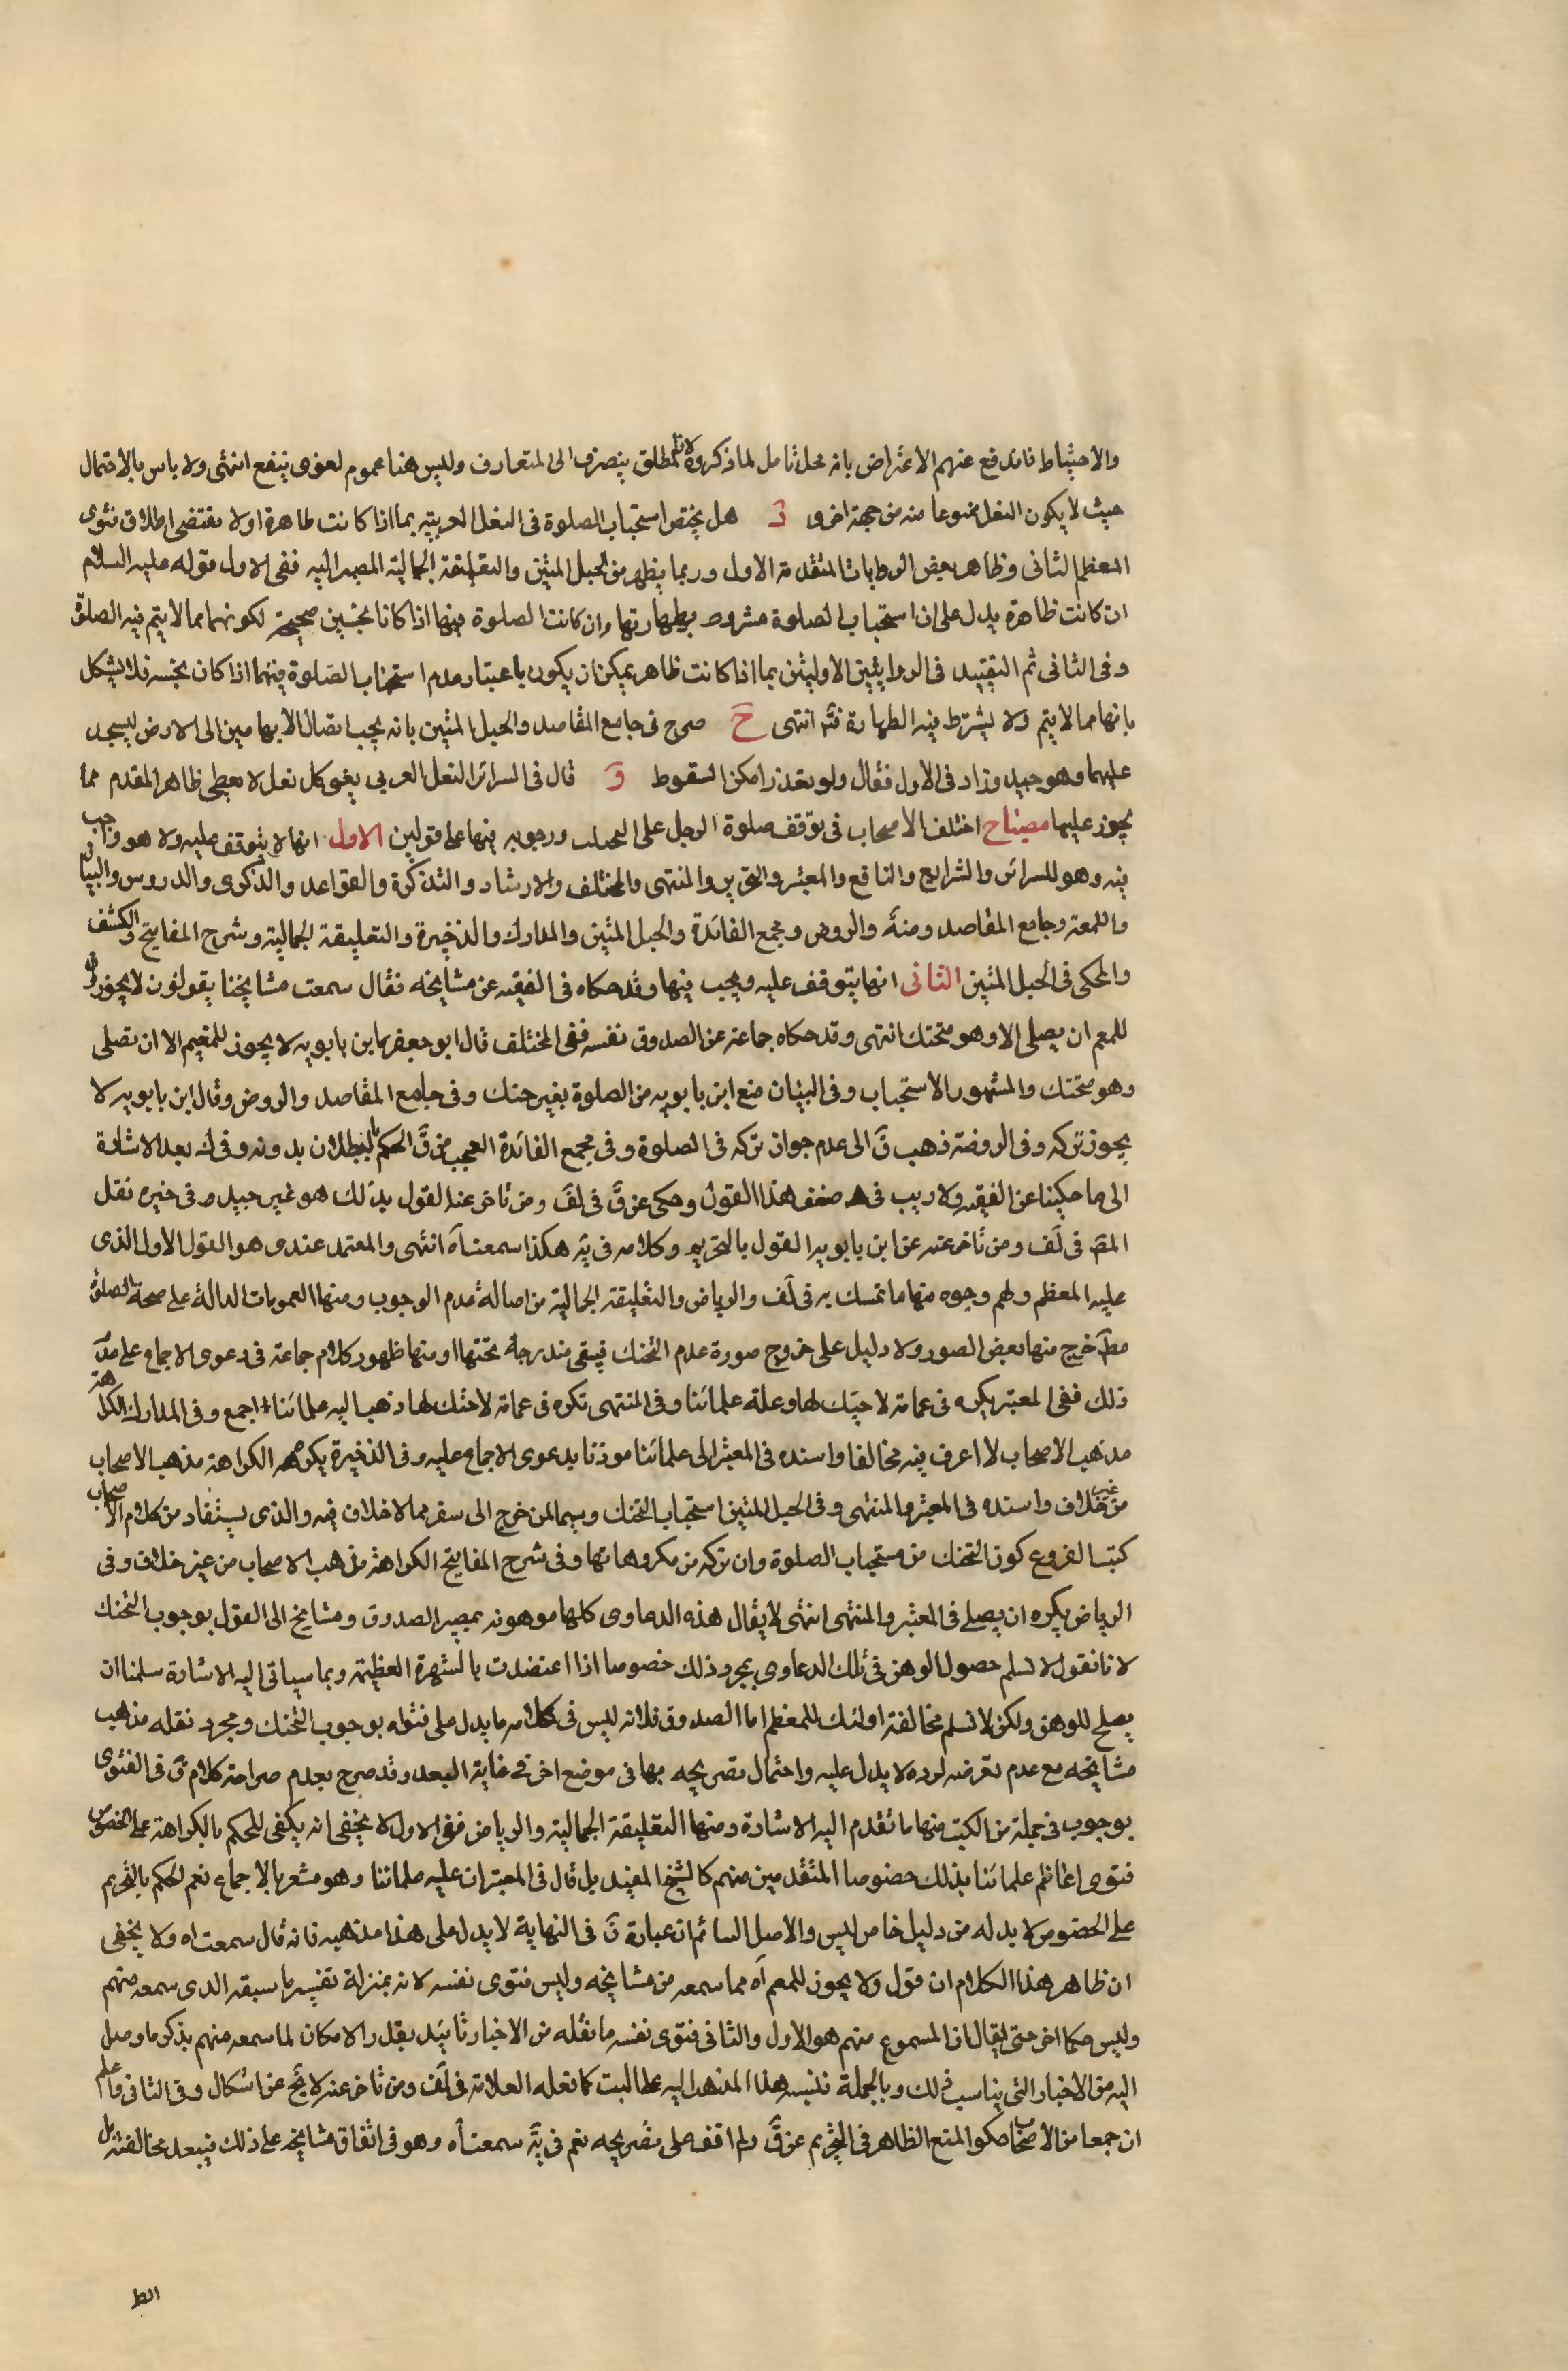 والاحتياط فاندفع عنهم الاعتراض بانه محل تامل لما ذكروه لان المطلق ينصرف الى المتعارف وليس هنا عموم لغوى ينفع انتهى ولا باس بالاحتمال
حيث لا يكون النعل ممنوعا منه من جهة اخرى هل يختص استحباب الصلوة فى النعل العربية بما اذا كانت طاهرة اولا مقتضى اطلاق فتوى
المعظم الثانى وظاهر بعض الروايات المتقدمة الاول وربما يظهر من الحبل المتين والتعليقة الجمالية المصير اليه ففى الاول قوله عليه السلام
ان كانت طاهرة يدل على ان استحباب الصلوة مشروط بطهارتها وان كانت الصلوة فيها اذا كانا نجسين صحيحة لكونهما مما لا يتم فيه الصلوة
وفى الثانى ثم التقييد فى الروايتين الاوليتين بما اذا كانت طاهر يمكن ان يكون باعتبار عدم استحباب الصلوة فيهما اذا كان نجسه فلا يشكل
بانها مما لا يتم ولا يشترط فيه الطهارة فتم انتهى ح صرح فى جامع المقاصد والحبل المتين بانه يجب ايصال الابهامين الى الارض ليسجد
عليهما وهو جيد وزاد فى الاول فقال ولو تعذر امكن السقوط و قال فى السرائر النعل العربى يغوى كل نعل لا يعطى ظاهر المقدم مما
يجوز عليها مصباح اختلف الاصحاب فى توقف صلوة الرجل على التحنك ووجوبه فيها على قولين الاول انها لا يتوقف عليه ولا هو واجب
فيه وهو للسرائر والشرايع والنافع والمعتبر والتحرير والمنتهى والمختلف والارشاد والتذكرة والقواعد والذكرى والدروس والبيان
واللمعة وجامع المقاصد ومنه والروض ومجمع الفائدة والحبل المتين والمدارك والذخيرة والتعليقة الجمالية وشرح المفاتيح والكشف
والمحكى فى الحبل المتين الثانى انها يتوقف عليه ويجب فيها وقد حكاه فى الفقيه عن مشايخه فقال سمعت مشايخنا يقولون لا يجوز
للمعم ان يصلى الا وهو متحنك انتهى وقد حكاه جماعة عن الصدوق نفسه ففى المختلف قال ابو جعفر بن بابويه لا يجوز للمعيم الا ان تصلى
وهو متحنك والمشهور الاستحباب وفى البيان منع ابن بابويه من الصلوة بغير حنك وفى جامع المقاصد والروض وقال ابن بابويه لا
يجوز تركه وفى الروضة ذهب ق الى عدم جواز تركه فى الصلوة وفى مجمع الفائدة العجب من ق الحكم بالبطلان بدونه وفى ك بعد الاشارة
الى ما حكينا عن الفقيه ولا ريب فى ضعف هذا القول وحكى عن ق فى لف ومن تاخر عنه القول بذلك هو غير جيد وفى خيره نقل
المص فى لف ومن تاخر عنه عن ابن بابويه القول بالتحريم وكلامه فى يه هكذا سمعت اه انتهى والمعتمد عندى هو القول الاول الذى
عليه المعظم ولهم وجوه منها ما تمسك به فى لف والرياض والتعليقة الجمالية من اصالة عدم الوجوب ومنها العمومات الدالة على صحة الصلوة
مط خرج منها بعض الصور ولا دليل على خروج صورة عدم التحنك فيبقى مندرجة تحتها او منها ظهور كلام جماعة فى دعوى الاجماع على
ذلك ففى المعتبر يكره فى عمامة لا حنك لها وعلة علمائنا وفى المنتهى تكره فى عمامة لا حنك لها ذهب اليه علمائنا اجمع وفى المدارك الكراهة
مذهب الاصحاب لا اعرف فيه مخالفا واسنده فى المعتبر الى علمائنا موذنا بدعوى الاجماع عليه وفى الذخيرة يكره الكراهة مذهب الاصحاب
من غير خلاف واسنده فى المعتبر والمنتهى وفى الحبل المتين استحباب التحنك وسيما لمن خرج الى سفر مما لا خلاف فيه والذى يستفاد من كلام الاصحاب
كتب الفروع كون التحنك من مستحباب الصلوة وان تركه من مكروهاتها وفى شرح المفاتيح الكراهة مذهب الاصحاب من غير خلاف وفى
الرياض يكره ان يصلى فى المعتبر والمنتهى انتهى لا يقال هذه الدعاوى كلها موهونه بمصير الصدوق ومشايخ الى القول بوجوب التحنك
لانا نقول لا نسلم حصول الوهن فى تلك الدعاوى بمجرد ذلك خصوصا اذا اعتضدت بالشهرة العظيمة وبما سياتى اليه الاشارة سلمنا ان
يصلح للوهن ولكن لا نسلم مخالفة اولئك للمعظم اما الصدوق فلانه ليس فى كلامه ما يدل على فتواه بوجوب التحنك ومجرد نقله مذهب
مشايخه مع عدم تعرضه لرده لا يدل عليه واحتمال تصريحه بها فى موضع اخر فى غاية البعد وقد صرح بعدم صراحة كلام ق فى الفتوى
بوجوب فى جملة من الكتب منها ما تقدم اليه الاشارة ومنها التعليقة الجمالية والرياض ففى الاول لا يخفى انه يكفى للحكم بالكراهة على الخصوص
فتوى اعاظم علمائنا بذلك خصوصا المتقدمين منهم كالشيخ المفيد بل قال فى المعتبر ان عليه علمائنا وهو مشعر بالاجماع نعم الحكم بالتحريم
على الخصوص لا بد له من دليل خاص ليس والاصل السائم ان عبارة ق فى النهاية لا يدل على هذا مذهبه فانه قال سمعت اه ولا يخفى
ان ظاهر هذا الكلام ان قول ولا يجوز للمعم اه مما سمعه من مشايخه وليس فتوى نفسه لانه بمنزلة تفسير ما سبقه الذى سمعه منهم
وليس حكما اخر حتى يقال ان المسموع منهم هو الاول والثانى فتوى نفسه ما نقله من الاخبار تائيد بقدر الامكان لما سمعه منهم بذكر ما وصل
اليه من الاخبار التى يناسب ذلك وبالجملة فنسبه هذا المذهب اليه على البت كما فعله العلامة فى لف ومن تاخر عنه لا يخ عن اشكال وفى الثانى واعلم
ان جمعا من الاصحاب حكوا المنع الظاهر فى التحريم عن ق ولم اقف على تصريحه نعم فى يه سمعت اه وهو فى اتفاق مشايخه على ذلك فيبعد مخالفته بل
الط